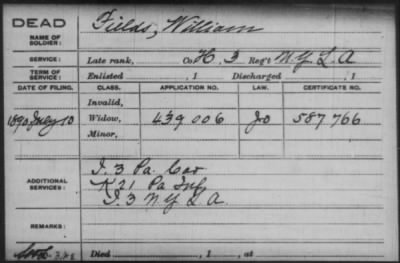 DEAD
NAME OF SOLDIER: Fields, William
SERVICE: Late rank, Co H, 3 Reg't N.Y. L. A
TERM OF SERVICE: Enlisted , 1 Discharged , 1
DATE OF FILING. CLASS. APPLICATION NO. LAW. CERTIFICATE NO.
Invalid,
1890 July 10 Widow, 439 006 587 766
Minor,
ADDITIONAL SERVICES: I. 3 Pa. Cav
K 21 Pa Inf
I. 3 N Y L A.
REMARKS:
Died , 1 , at